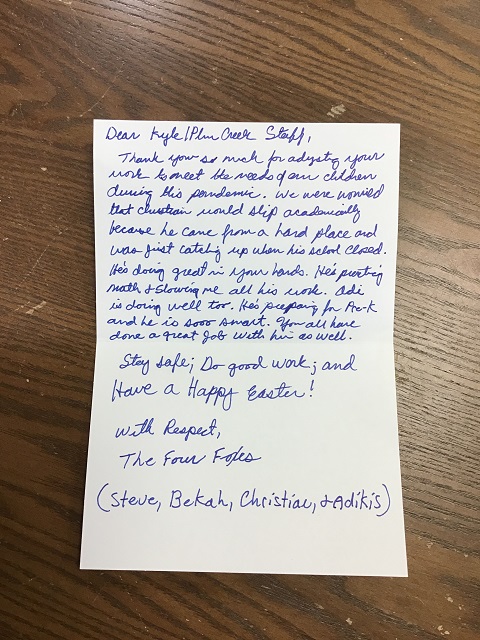 Dear Kyle/Plum Creek Staff,
Thank you so much for adjusting your
work to meet the needs of our children
during this pandemic. We were worried
that Christian would slip academically
because he came from a hard place and
was just catching up when his school closed.
He's doing great in your hands. He's
math & showing me all his work. Adi
is doing well too. He's preparing for Pre-K
and he is sooo smart. You all have
done a great job with him as well.
Stay safe; Do good work; and
Have a Happy Easter!
With Respect,
The Four Foxes
(Steve, Bekah, Christian, & Adikis)